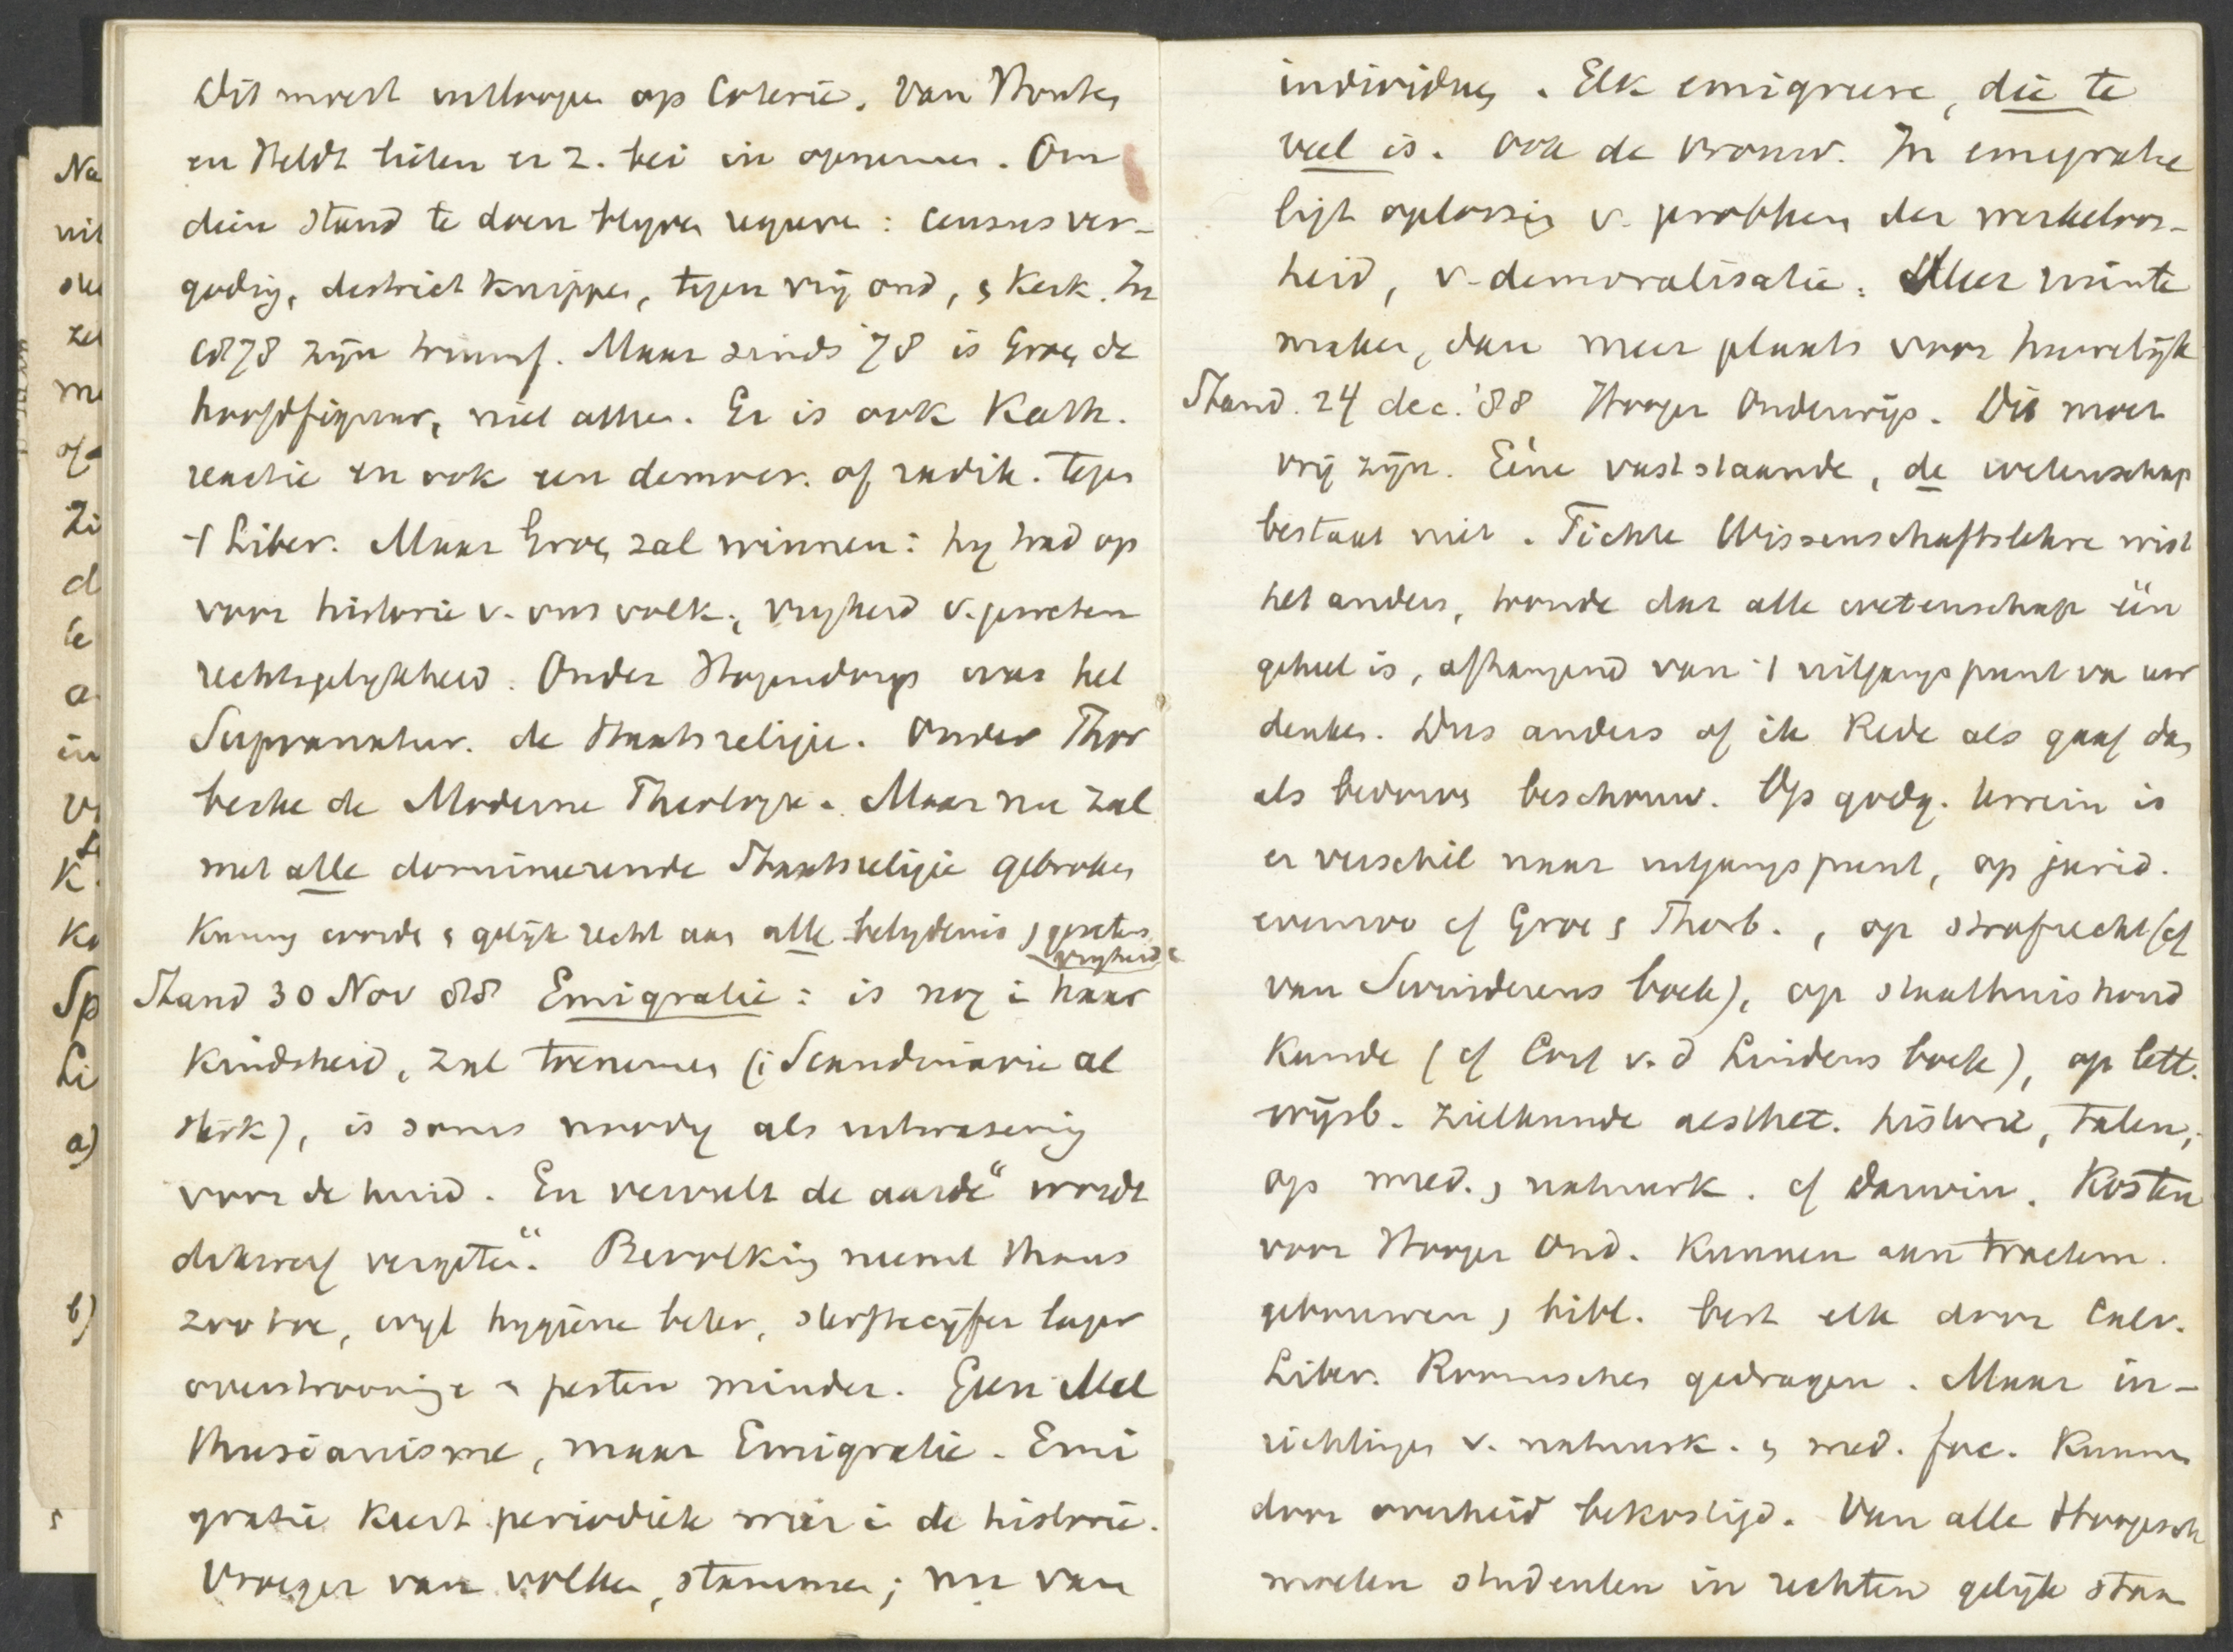 Na
nit
ste
zel
me
of
Zi
d
te
a
in
V
K.
Ka
Sp
Li
a)
b)
Dit moest uitloopen op Coterie. Van Houten
en Heldt lieten er z. bei in opnemen. Om
dien stand te doen blyven regeren: census ver-
goding, district knippen, tegen vrij ond, & Kerk. In
1878 zijn triumf. Maar sinds '78 is Groen de
hoofdfiguur, niet alleen. Er is ook Kath.
reactie en ook een democr. of radik. tegen
't Liber. Maar Groen zal winnen: hy had op
voor historie v. ons volk, vryheid v. geweten
rechtsgelykheid. Onder Hogendorp was het
Supranatur. de staatsreligie. Onder Thor
becke de Moderne Theologie. Maar nu zal
met alle domineerende Staatsreligie gebroken
kunnen worden & gelijk recht aan alle belydenis & gewetens
vryheid
Stand 30 Nov 88 Emigratie: is nog i haar
kindsheid, zal toenemen (i Scandinavie al
sterk), is soms noodig als uitwaseming
voor de huid. En vervult de aarde" wordt
dikwerf vergeten". Bevolking neemt thans
zoo toe, wyl hygiëne beter, sterftecijfer lager
overstrooming & pesten minder. Geen Mal
thusianisme, maar Emigratie. Emi
gratie keert periodiek weer i de historie.
Vroeger van volken, stammen; nu van
individuen. Elk emigreere, die te
veel is. Ook de vrouw. In emigratie
ligt oplossing v. probleem der werkeloos-
heid, v. demoralisatie. Meer ruimte
maken, dan meer plaats voor huwelijk
Stand. 24 dec. '88 Hooger Onderwijs. Dit moet
vrij zijn. Eéne vaststaande, de wetenschap
bestaat niet. Fichte Wissenschaftslehre wist
het anders, toonde dat alle wetenschap één
geheel is, afhangend van 't uitgangspunt va uw
denken. Dus anders of ik Rede als gaaf dan
als bedorven beschouw. Op godg. terrein is
er verschil naar uitgangspunt, op jurid.
evenzoo cf Groen & Thorb., op strafrecht (cf
van Swinderens boek), op staathuishoud
kunde (cf Cort v. d Lindens boek), op lett.
wijsb. zielkunde aesthet. historie, talen;
op med. & natuurk. cf Darwin. Kosten
voor Hooger Ond. kunnen aan tractem.
gebouwen & bibl. best elk door Calv.
Liber. Roomschen gedragen. Maar in-
richtingen v. natuurk. & med. fac. kunnen
door overheid bekostigd. Van alle Hoogesch
moeten studenten in rechten gelijk staan